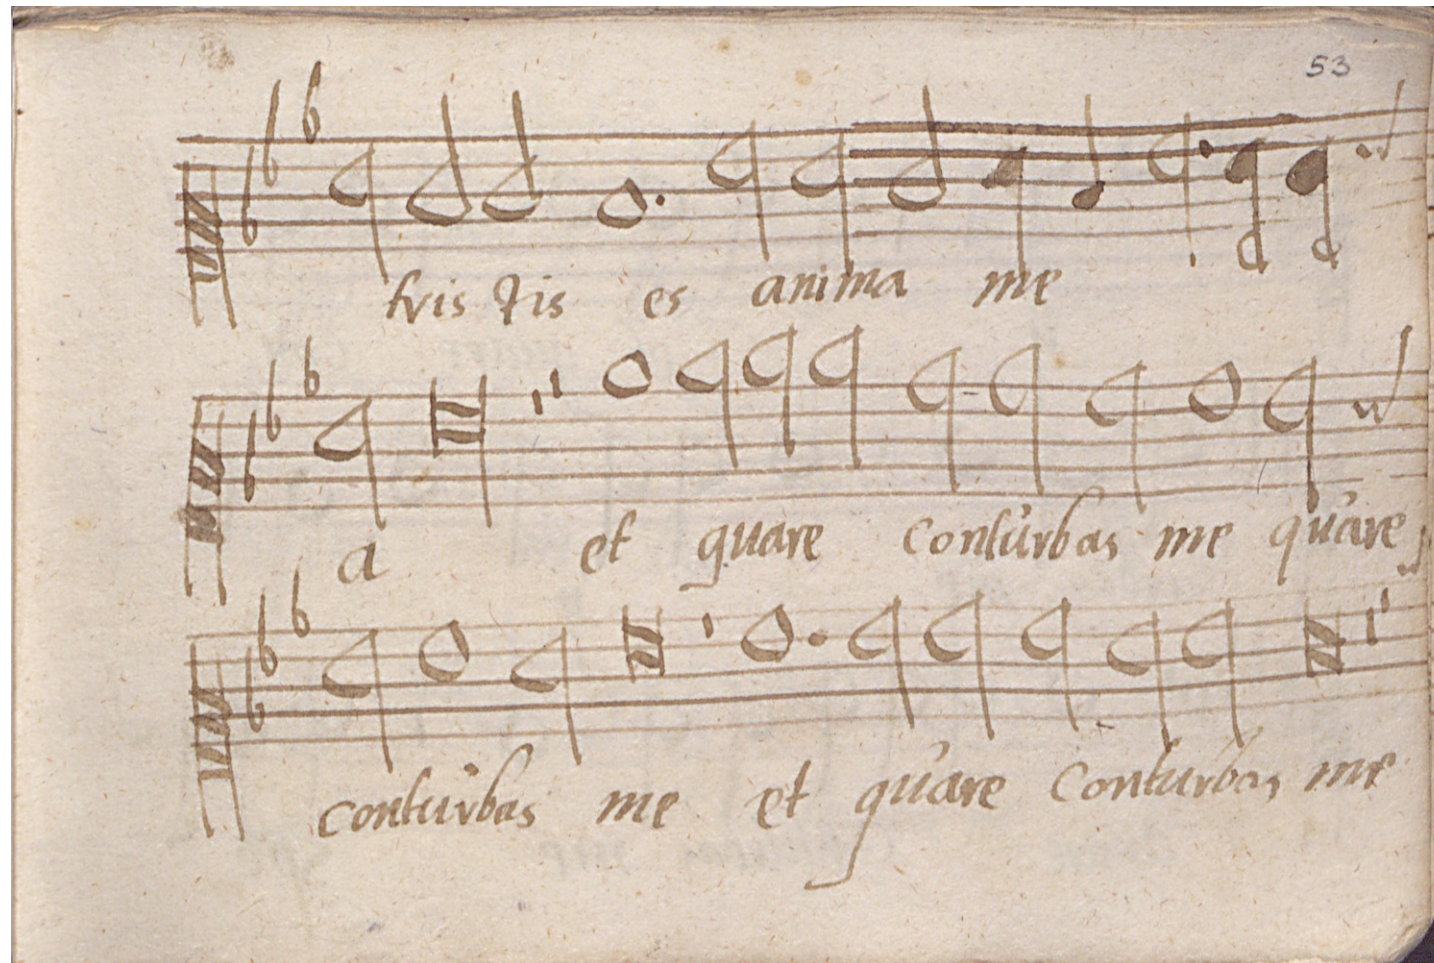 53
tris tis es anima me
a et quare conturbas me quare
conturbas me et quare conturbas me